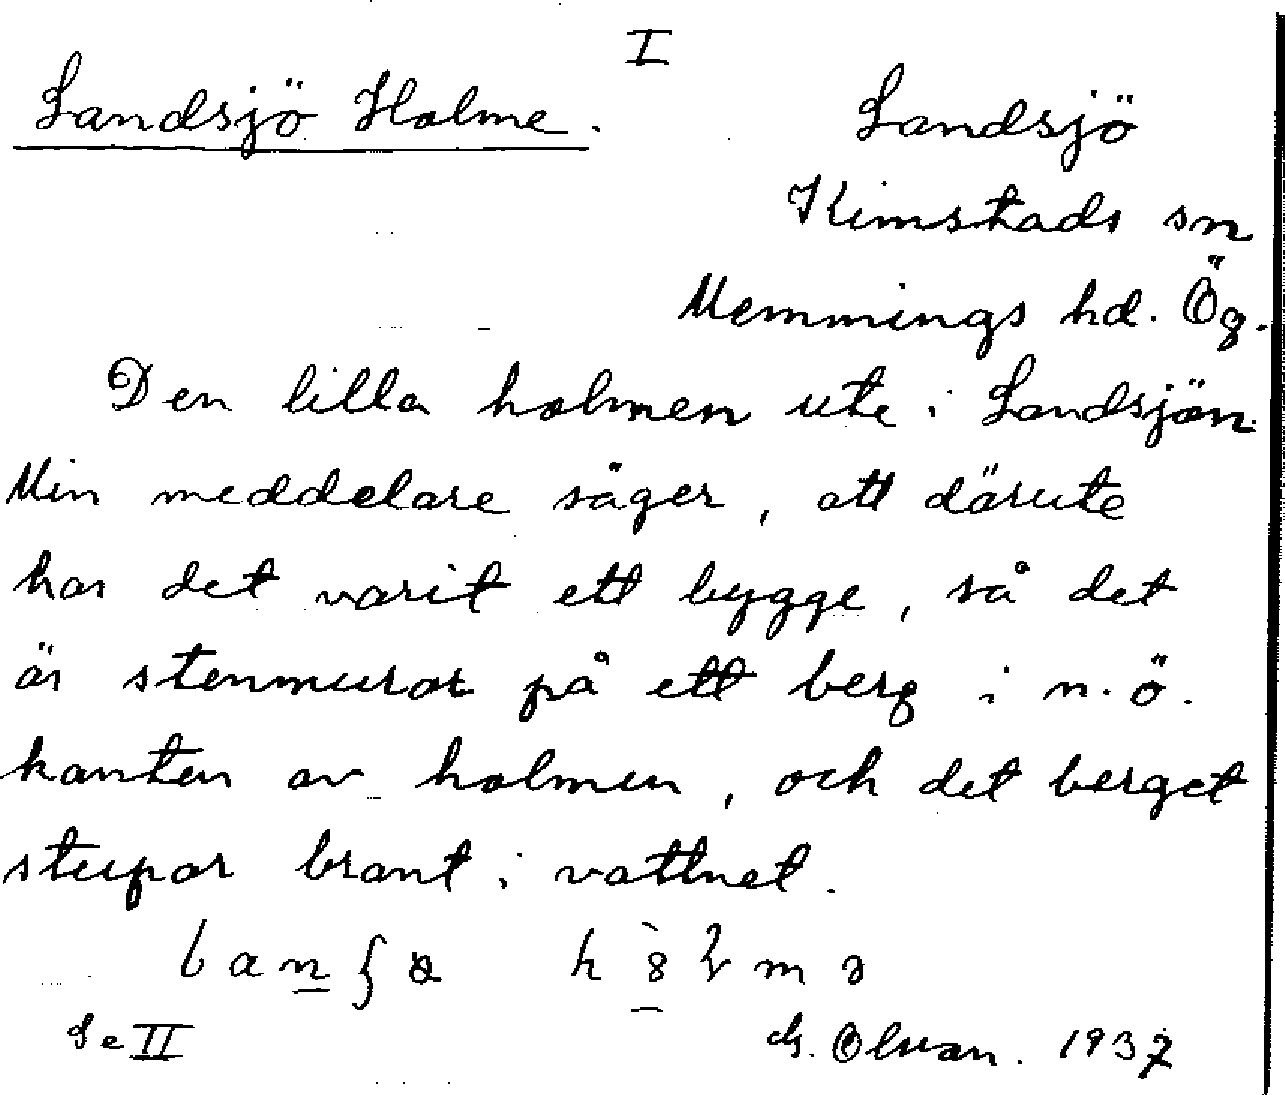 I
Landsjö Holme.
Landsjö
Kimstads sn
Memmings hd. Ög.
Den lilla holmen ute i Landsjön.
Min meddelare säger, att därute
har det varit ett bygge, så det
är stenmurar på ett berg i n.ö.
kanten av holmen, och det berget
stupar brant i vattnet.
Se II
G. Olson. 1937